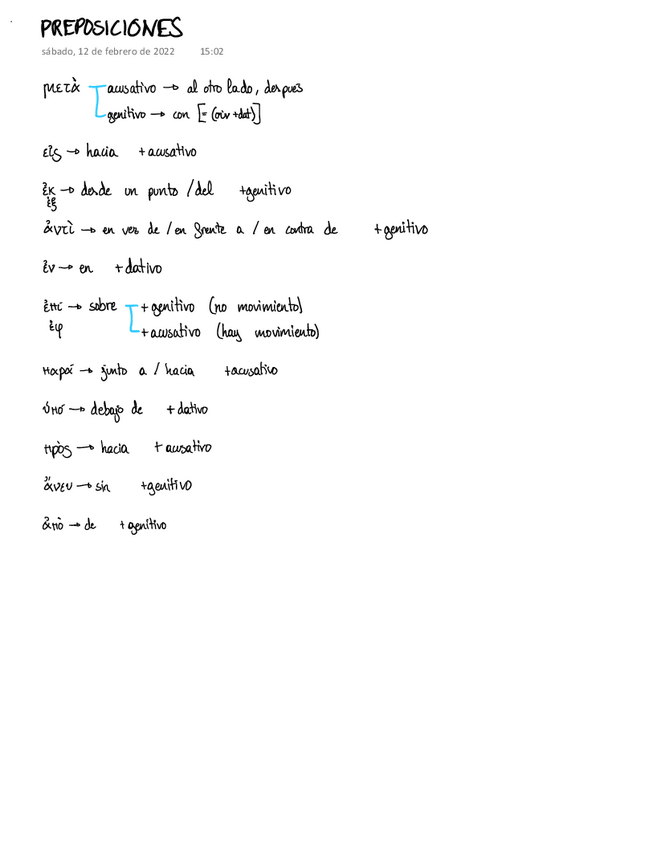 PREPOSICIONES
sábado, 12 de febrero de 2022 15:02
μετὰ acusativo → al otro lado, después
genitivo → con [= (σύν +dat)]
εἰς → hacia + acusativo
ἐκ → desde un punto / del +genitivo
ἐξ
ἀντὶ → en vez de / en frente a / en contra de +genitivo
ἐν → en + dativo
ἐπί → sobre + genitivo (no movimiento)
ἐφ + acusativo (hay movimiento)
παρά → junto a / hacia +acusativo
ὑπό → debajo de + dativo
πρὸς → hacia + acusativo
ἄνευ → sin +genitivo
ἀπὸ → de + genitivo